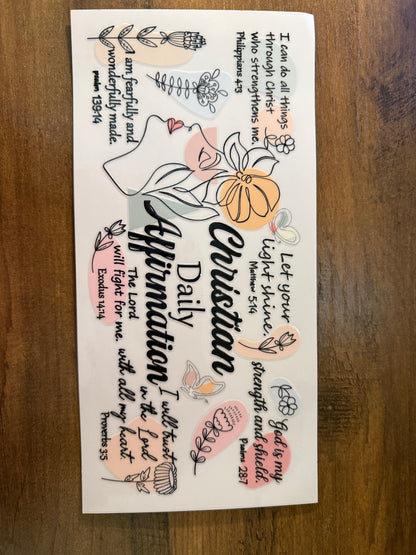 I can do all things
through Christ
who strengthens me.
Philippians 4:13
I am fearfully and
wonderfully made.
psalm 139:14
Let your
light shine.
Matthew 5:14
Christian
Daily
Affirmation
The Lord
will fight for me.
Exodus 14:14
God is my
strength and shield.
Psalms 28:7
I will trust
in the Lord
with all my heart.
Proverbs 3:5